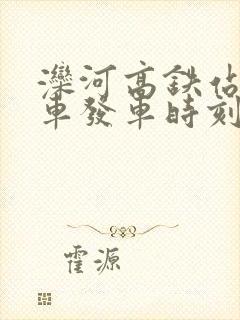 灤河高鉄佔
車發車時刻
霍源